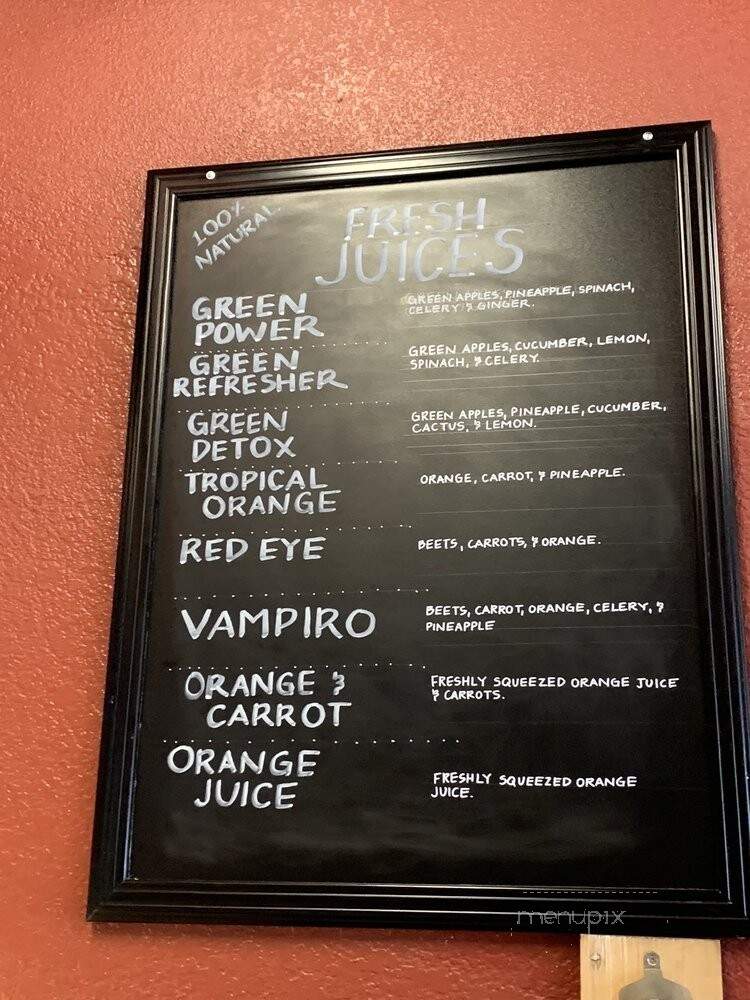 100% NATURAL
FRESH
JUICES
GREEN
POWER
GREEN APPLES, PINEAPPLE, SPINACH,
CELERY & GINGER.
GREEN
REFRESHER
GREEN APPLES, CUCUMBER, LEMON,
SPINACH, & CELERY.
GREEN
DETOX
GREEN APPLES, PINEAPPLE, CUCUMBER,
CACTUS, & LEMON.
TROPICAL
ORANGE
ORANGE, CARROT, & PINEAPPLE.
RED EYE
BEETS, CARROTS, & ORANGE.
VAMPIRO
BEETS, CARROT, ORANGE, CELERY, &
PINEAPPLE
ORANGE &
CARROT
FRESHLY SQUEEZED ORANGE JUICE
& CARROTS.
ORANGE
JUICE
FRESHLY SQUEEZED ORANGE
JUICE.
menupix